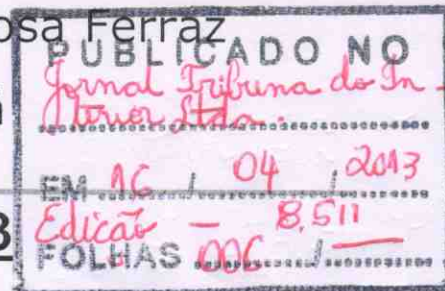 osa Ferraz
PUBLICADO NO
Jornal Tribuna do In-
terior Ltda.
EM 16 / 04 / 2013
Edição - 8.511
FOLHAS 006 /